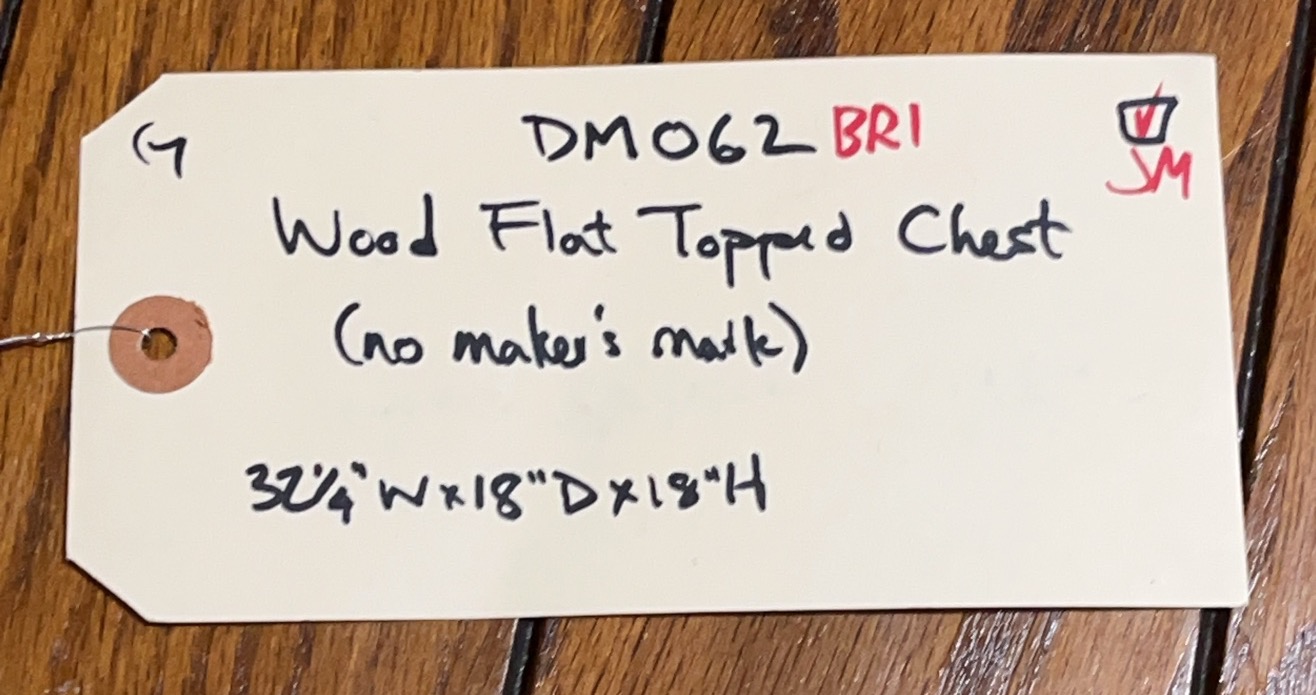 DM062 BR1
JM
Wood Flat Topped Chest
(no maker's mark)
32¼" W x 18" D x 18" H